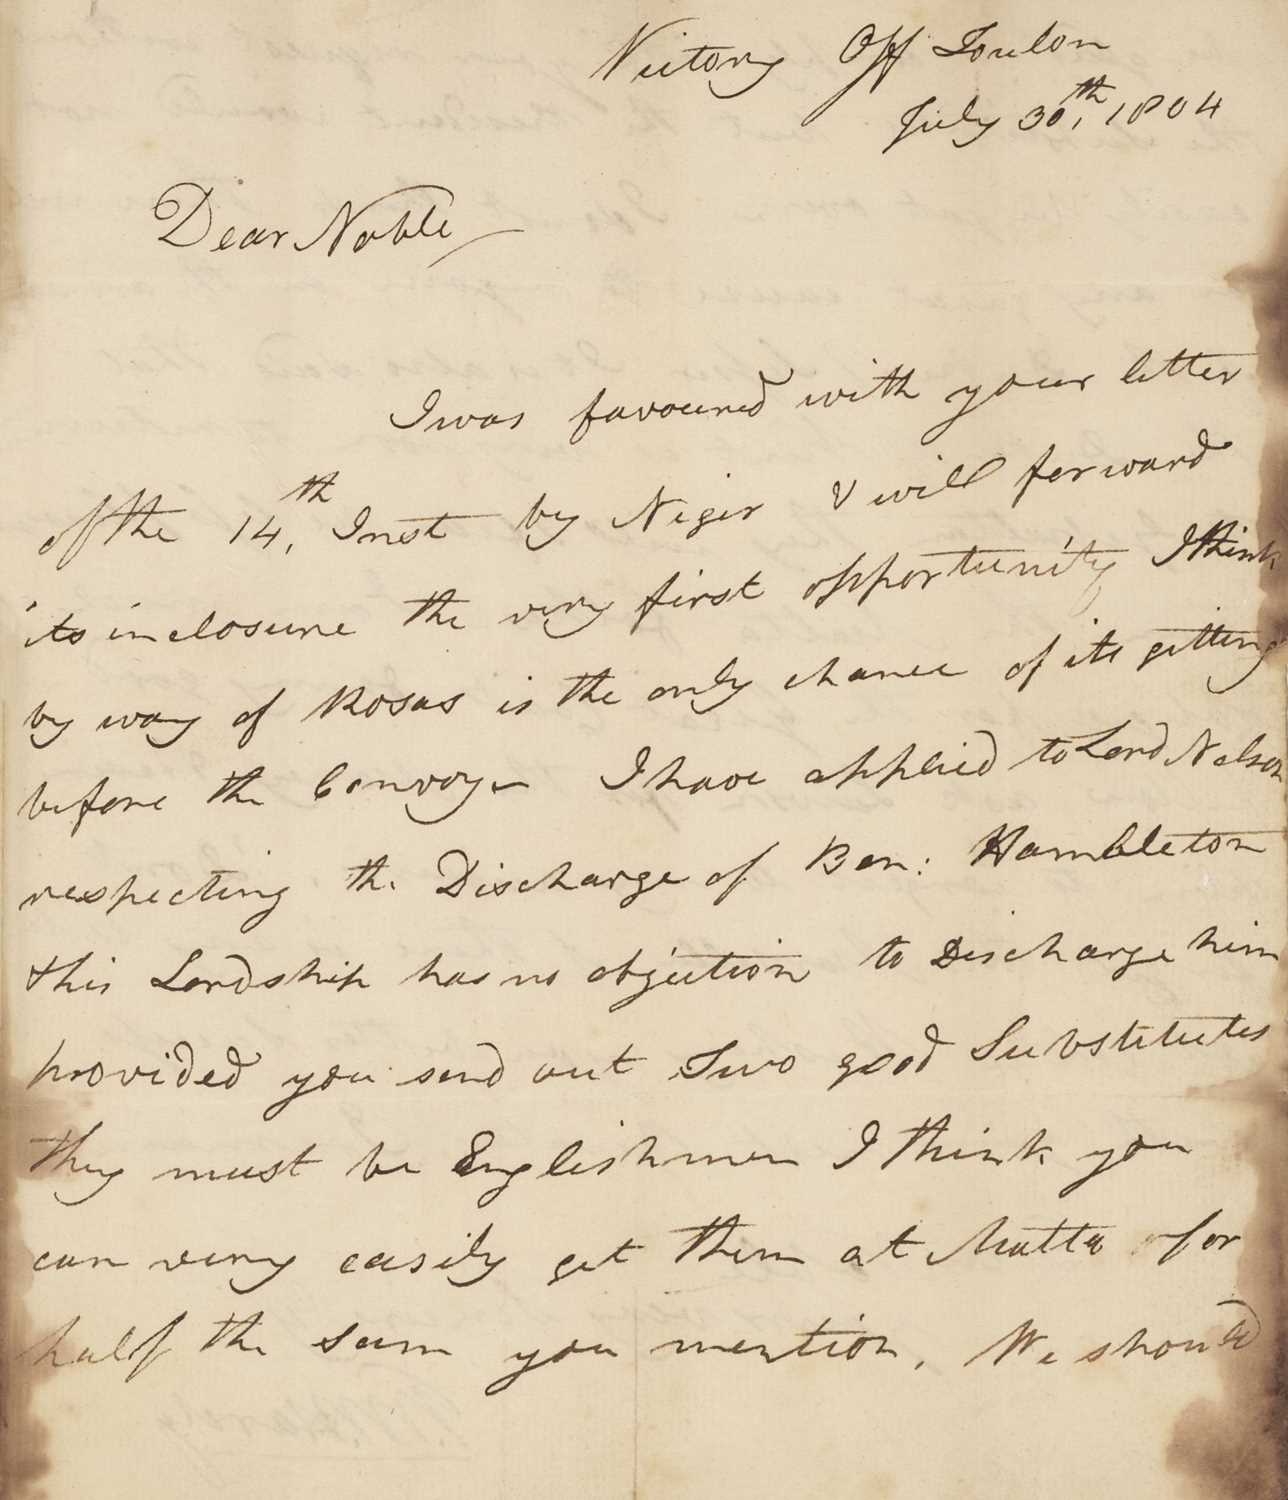 Victory Off Toulon
July 30,th 1804
Dear Noble
I was favoured with your letter
of the 14,th Inst by Niger & will forward
its inclosure the very first opportunity I think
by way of Rosas is the only chance of its getting
before the Convoy. I have applied to Lord Nelson
respecting the Discharge of Ben: Hambleton
this Lordship has no objection to Discharge him
provided you send out Two good Substitutes
they must be Englishmen I think you
can very easily get them at Malta for
half the sum you mention, We should